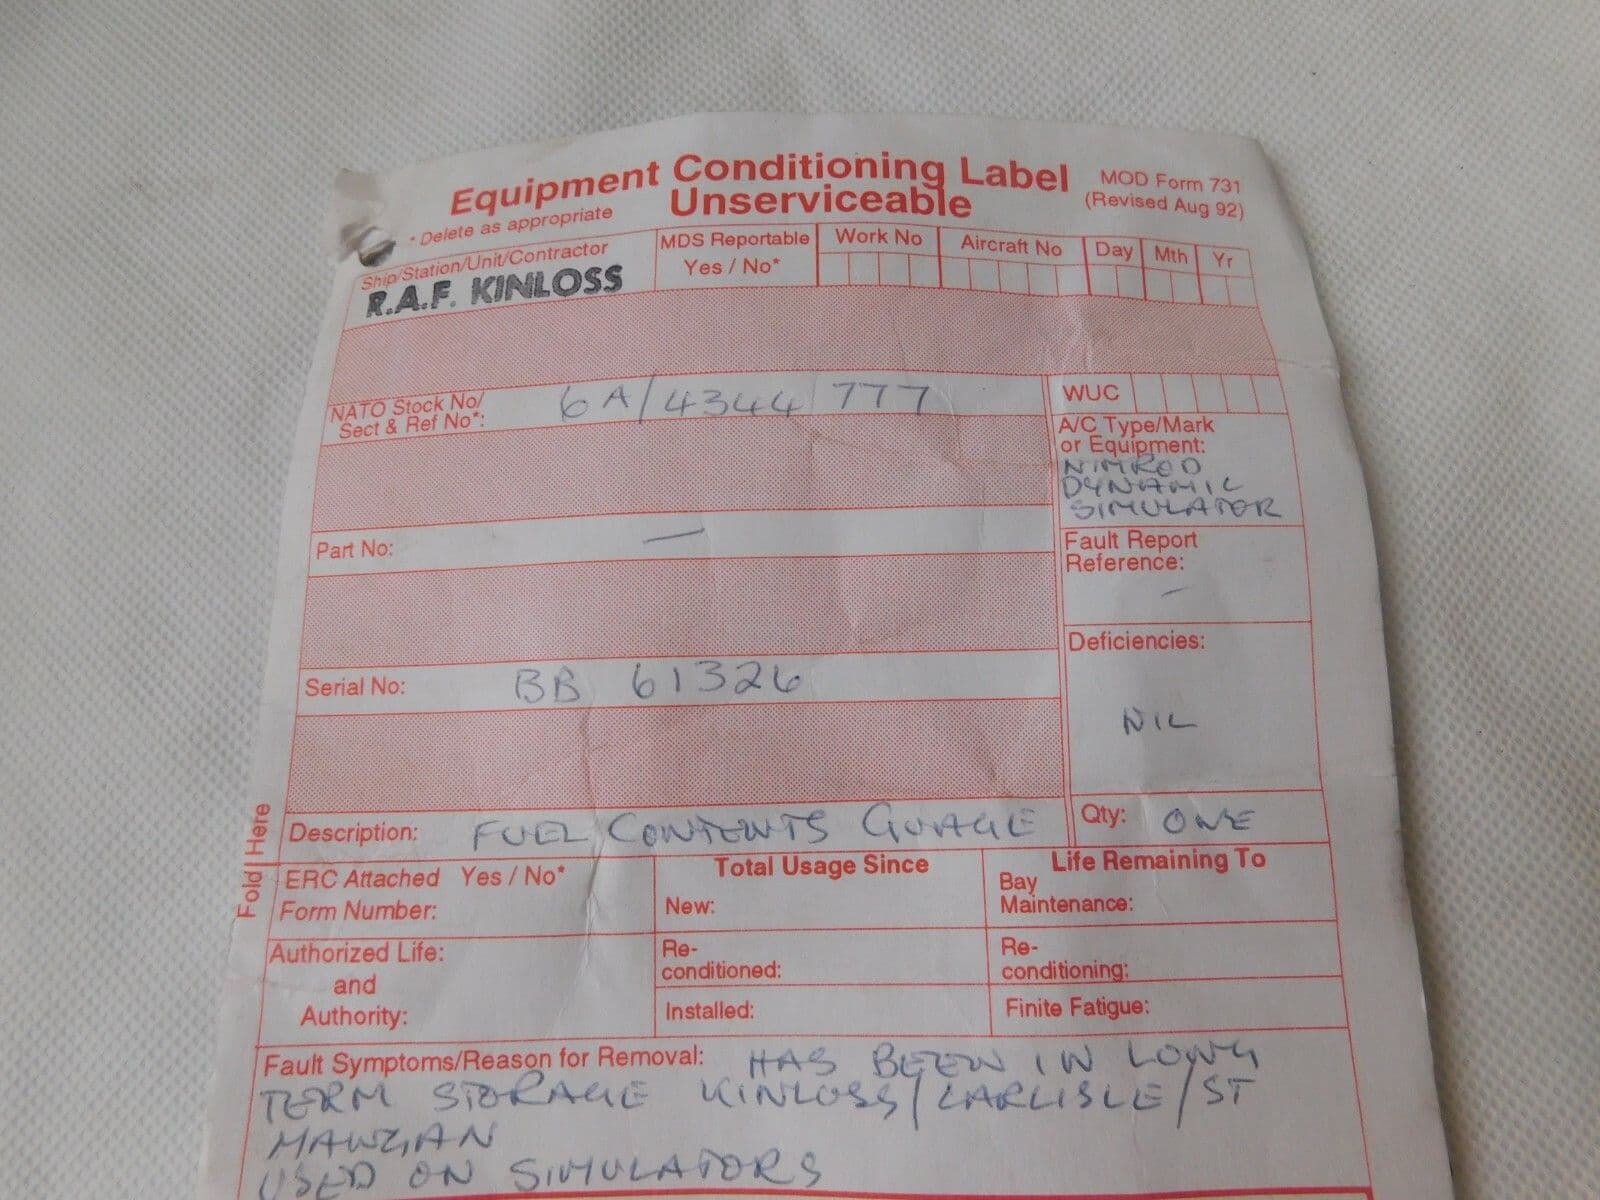 Equipment Conditioning Label
Unserviceable
MOD Form 731
(Revised Aug 92)
* Delete as appropriate
Ship/Station/Unit/Contractor
R.A.F. KINLOSS
MDS Reportable
Yes / No*
Work No
Aircraft No
Day
Mth
Yr
NATO Stock No/
Sect & Ref No*:
6A/4344/777
WUC
A/C Type/Mark
or Equipment:
NIMROD
DYNAMIC
SIMULATOR
Part No: —
Fault Report
Reference:
–
Serial No: BB 61326
Deficiencies:
NIL
Description: FUEL CONTENTS GUAGE
Qty: ONE
Fold Here
ERC Attached Yes / No*
Form Number:
Total Usage Since
New:
Life Remaining To
Bay
Maintenance:
Authorized Life:
and
Authority:
Re-
conditioned:
Re-
conditioning:
Installed:
Finite Fatigue:
Fault Symptoms/Reason for Removal: HAS BEEN IN LONG
TERM STORAGE KINLOSS/CARLISLE/ST
MAWGAN
USED ON SIMULATORS